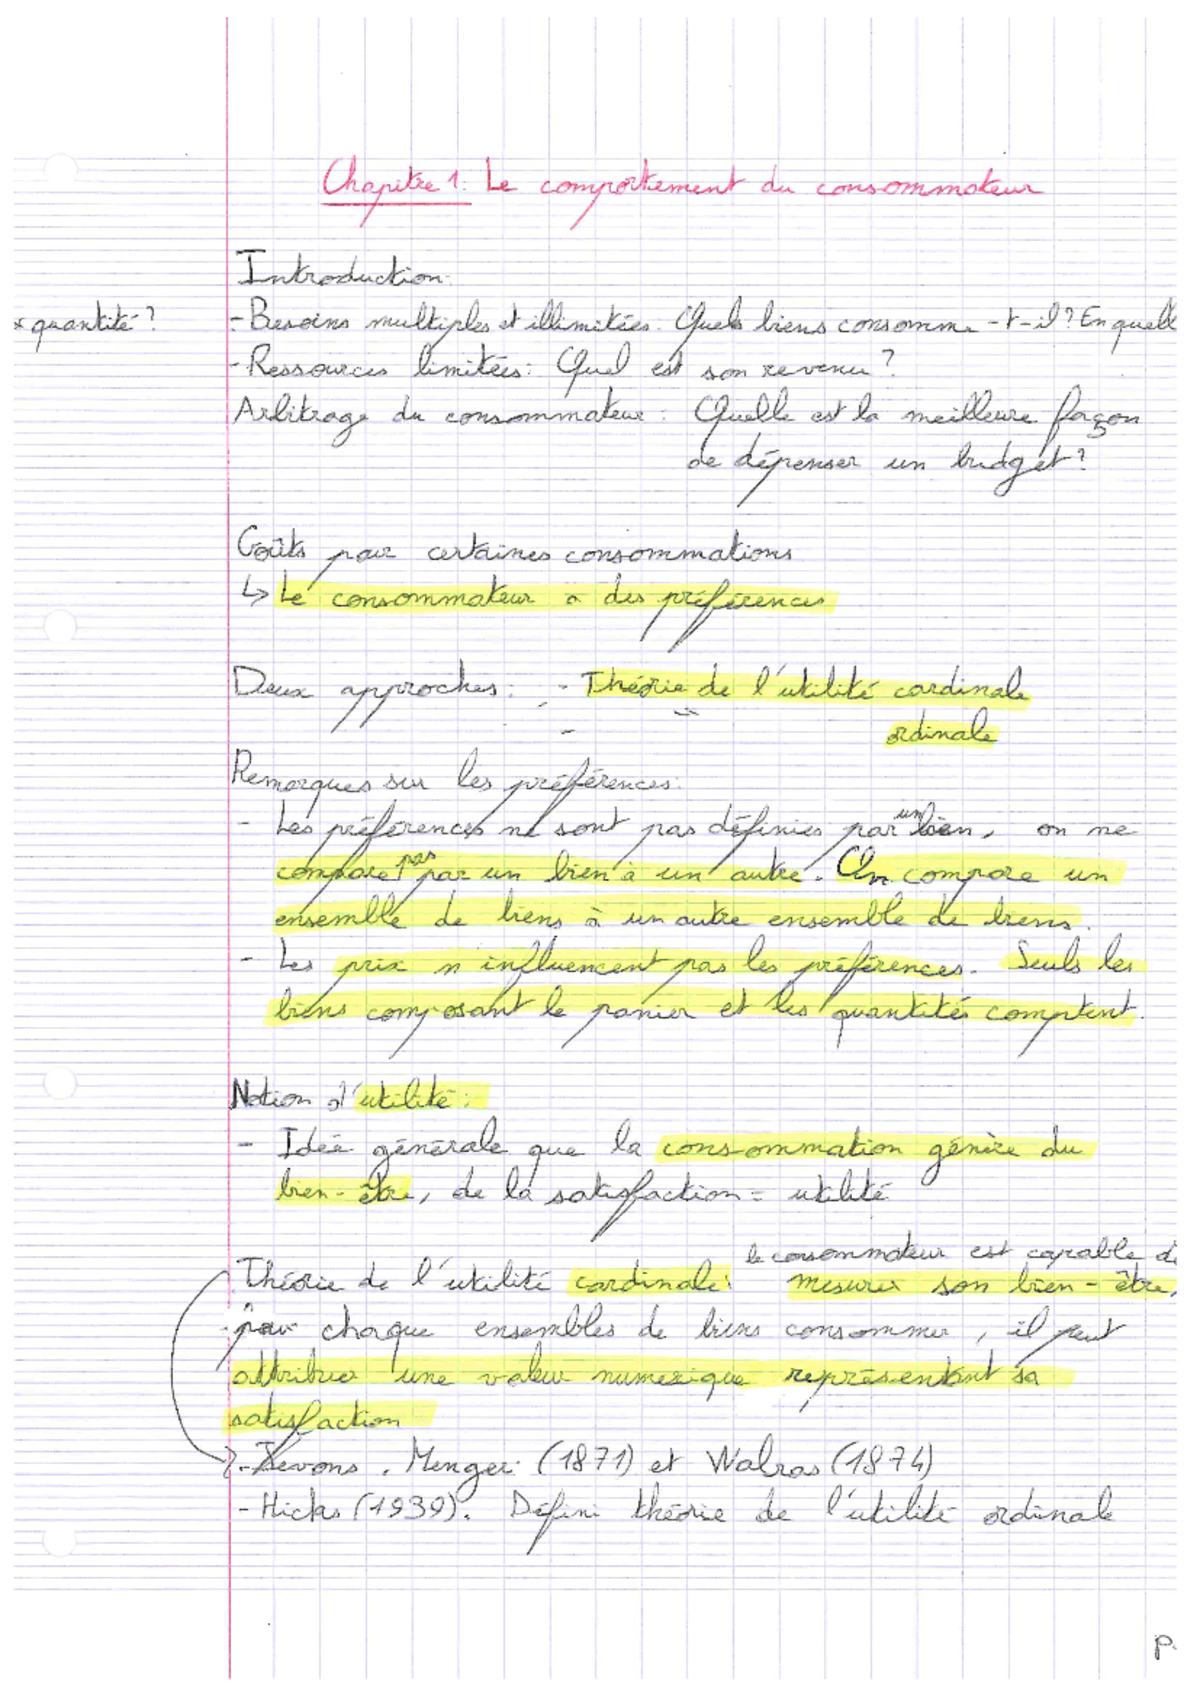 Chapitre 1: Le comportement du consommateur
Introduction:
- Besoins multiples et illimitées: Quels biens consomme-t-il? En quelle
* quantité?
- Ressources limitées: Quel est son revenu?
Arbitrage du consommateur: Quelle est la meilleure façon
de dépenser un budget?
Goûts pour certaines consommations
↳ Le consommateur a des préférences
Deux approches: - Théorie de l'utilité cardinale
- = ordinale
Remarques sur les préférences:
- Les préférences ne sont pas définies par un bien, on ne
compare pas par un bien à un autre. On compare un
ensemble de biens à un autre ensemble de biens.
- Les prix n'influencent pas les préférences. Seuls les
biens composant le panier et les quantités comptent.
Notion d'utilité:
- Idée générale que la consommation génère du
bien-être, de la satisfaction = utilité
Théorie de l'utilité cardinale: le consommateur est capable de
mesurer son bien-être,
pour chaque ensembles de biens consommer, il peut
attribuer une valeur numérique représentant sa
satisfaction
- Jevons, Menger (1871) et Walras (1874)
- Hicks (1939). Défini théorie de l'utilité ordinale
P.